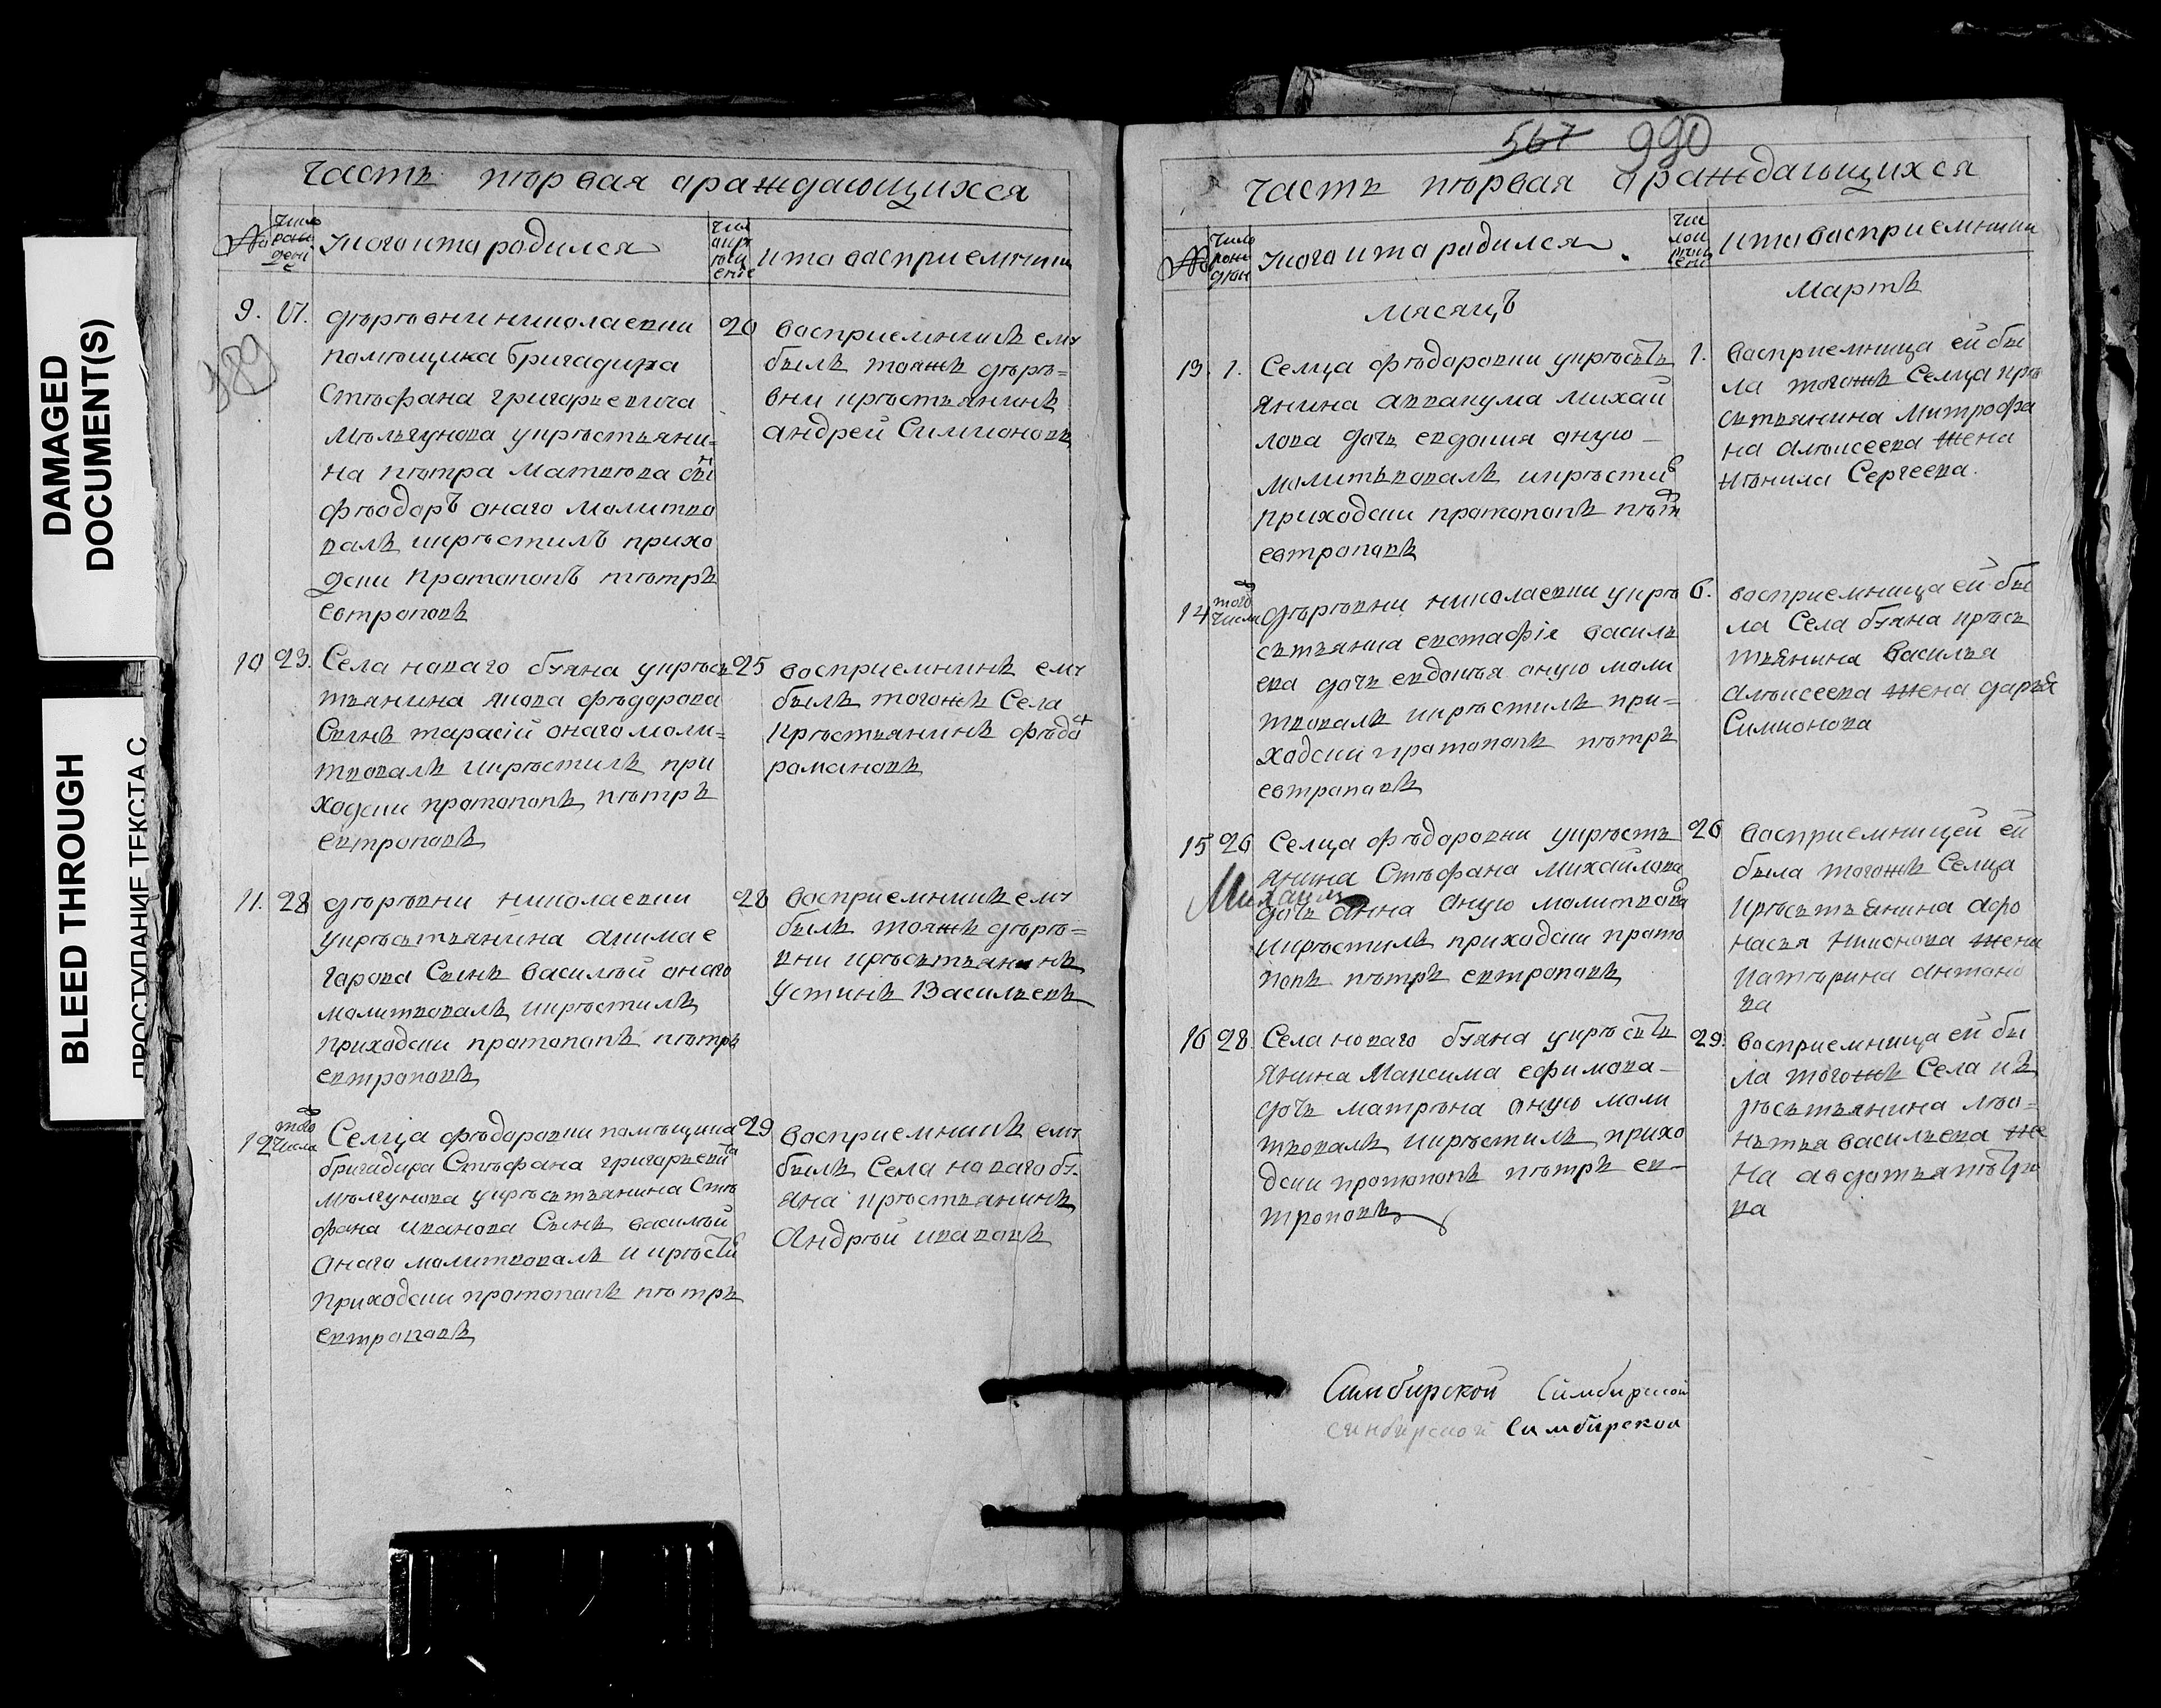 DAMAGED
DOCUMENT(S)
BLEED THROUGH
ПРОСТУПАНИЕ ТЕКСТА С
часть первая ораждающихся
№
число
рож
дени
е
укого кто родился
кто восприемники
9. 17. деревни николаевки
помещика бригадира
Стефана григорьевича
Мельгунова укрестьяни=
на петра Матвеева сы
феодоръ онаго Молитво
валъ икрестилъ прихо
дски протопопъ петръ
евтроповъ
20 восприемникъ ему
былъ тояжъ дере=
вни крестьянинъ
андрей Симионовъ
389
10 23. Села новаго беяна укрес
тьянина якова федорова
Сынъ тарасій онаго моли=
твовалъ икрестилъ при
ходски протопопъ петръ
евтроповъ
25 восприемникъ ему
былъ тогожъ Села
крестьянинъ федо
романовъ
11. 28 деревни николаевки
укрестьянина акима е
горова Сынъ василей онаго
молитвовалъ икрестилъ
приходски протопопъ петръ
евтроповъ
28 восприемникъ ему
былъ тояжъ дере=
вни крестьянинъ
устинъ Васильевъ
12 того числа Селца федоровки помещика
бригадира Стефана григорьевича
мелгунова укрестьянина Сте
фана иванова Сынъ василей
онаго молитвовалъ и крести
приходски протопопъ петръ
евтроповъ
29 восприемникъ ему
былъ Села новаго бе
яна крестьянинъ
Андрей ивановъ
567 990
часть первая ораждающихся
№
число
рож
ден
укого кто родился
кто восприемники
месяцъ
Мартъ
13. 1. Селца федоровки укресть
янина аввакума михаи
лова дочь евдокия оную
молитвовалъ икрести
приходски протопопъ пет
евтроповъ
1. восприемница ей бы
ла тогожъ Селца кре
стьянина митрофа
на алексеева жена
неонила Сергеева.
14 того числа деревни николаевки укре
стьянина евстафія василь
ева дочь евдокъя оную моли
твовалъ икрестилъ при=
ходски протопопъ петръ
евтроповъ
6. восприемница ей бы
ла Села беяна крес
тьянина василья
алексеева жена дарья
Симионова
15 26 Селца федоровки укресть
янина Стефана михайлова
Михаил
дочь анна оную молитвова
икрестилъ приходски прото
попъ петръ евтроповъ
26 восприемницей ей
была тогожъ Селца
крестьянина афо
насья жена
катерина антоно
ва
16 28. Села новаго беяна укресть
янина Максима ефимова
дочь матрена оную моли
твовалъ икрестилъ прихо
дски протопопъ петръ ев
троповъ
29. восприемница ей бы
ла тогожъ Села кр
рестьянина леон
нтья васильева же
на авдотья петро
ва
Симбирской Симбирской
Синбирской Симбирской